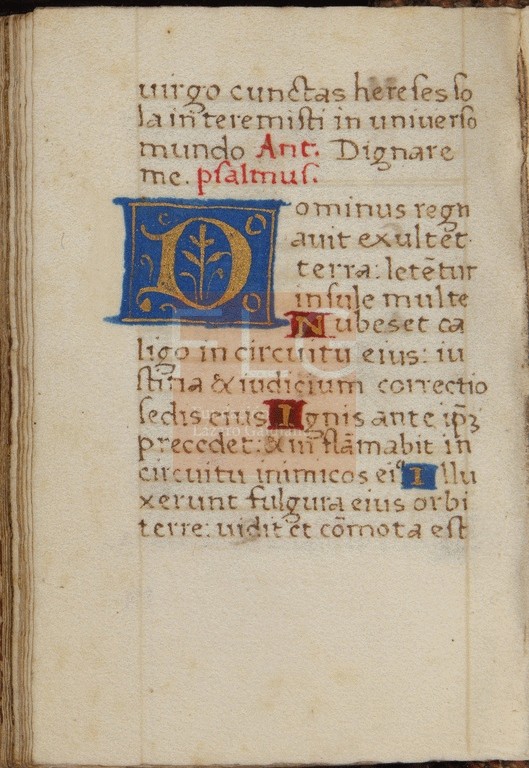 uirgo cunctas hereses so
la interemisti in uniuerso
mundo Ant. Dignare
me. psalmus.
Dominus regn
auit exultet
terra: letētur
insule multe
Nubes et ca
ligo in circuitu eius: iu
stitia & iudicium correctio
sedis eius Ignis ante ip̄ꝫ
precedet: & inflāmabit in
circuitu inimicos eiꝰ Illu
xerunt fulgura eius orbi
terre: uidit et cōmota est
FLG